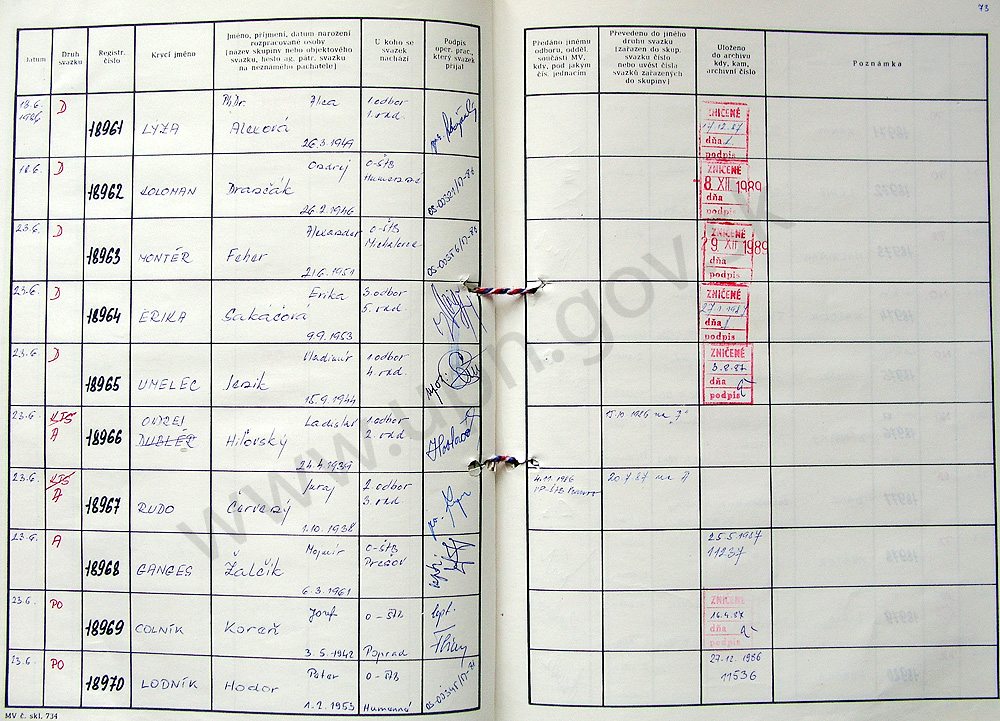 73
Datum
Druh svazku
Registr. číslo
Krycí jméno
Jméno, příjmení, datum narození
rozpracované osoby
(název skupiny nebo objektového
svazku, heslo ag. pátr. svazku
na neznámého pachatele)
U koho se
svazek
nachází
Podpis
oper. prac.,
který svazek
přijal
Předáno jinému
odboru, odděl.
součásti MV,
kdy, pod jakým
čís. jednacím
Převedeno do jiného
druhu svazku
(zařazen do skup.
svazku číslo
nebo uvést čísla
svazků zařazených
do skupiny)
Uloženo
do archivu
kdy, kam,
archivní číslo
Poznámka
18.6. 1986 D 18961 LÝZA
PhDr. Alea
Alexová
26.3.1949
1. odbor
1. rad.
ZNIČENÉ
17.12.87
dňa
podpis
18.6. D 18962 KOLOMAN
Ondrej
Drančák
26.2.1946
O-ŠtB
Humenné
ZNIČENÉ
8. XII. 1989
dňa
podpis
23.6. D 18963 MONTÉR
Alexander
Feher
21.6.1951
O-ŠtB
Michalovce
ZNIČENÉ
29. XII 1989
dňa
podpis
23.6. D 18964 ERIKA
Erika
Sakáčová
9.9.1953
3. odbor
5. rad.
ZNIČENÉ
dňa
podpis
23.6. D 18965 UMELEC
Vladimír
15.9.1944
1. odbor
4. rad.
ZNIČENÉ
3.8.87
dňa
podpis
23.6. KTS A 18966 ONDREJ
DUBLÉR
Ladislav
Hiľovský
24.4.1939
1. odbor
2. rad.
15.10.1986 na
23.6. KTS A 18967 RUDO
Juraj
Červený
1.10.1938
2. odbor
3. rad.
4.11.1986
20.7.87 na A
23.6. A 18968 GANGES
Mojmír
Žalčík
6.3.1961
O-ŠtB
Prešov
25.5.1987
11237
23.6. PO 18969 COLNÍK
Jozef
Koraň
3.5.1942
O-ŠtB
Poprad
ZNIČENÉ
16.4.87
dňa
podpis
23.6. PO 18970 LODNÍK
Peter
Hodor
1.2.1953
O-ŠtB
Humenné
27.12.1986
11536
MV č. skl. 734
www.upn.gov.sk